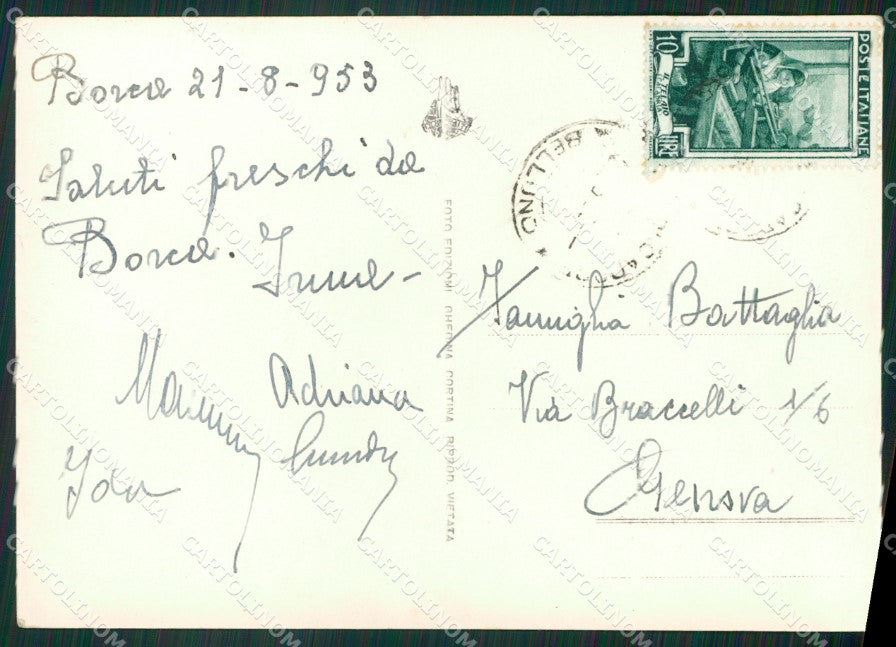 Borca 21-8-953
Saluti freschi da
Borca. Irma -
Adriana
Ida
FOTO EDIZIONI GHEDINA CORTINA RIPROD. VIETATA
10
LIRE
IL TELAIO
POSTE ITALIANE
BELLUNO
Famiglia Battaglia
Via Braccelli 1/6
Genova
CARTOLINOMANIA